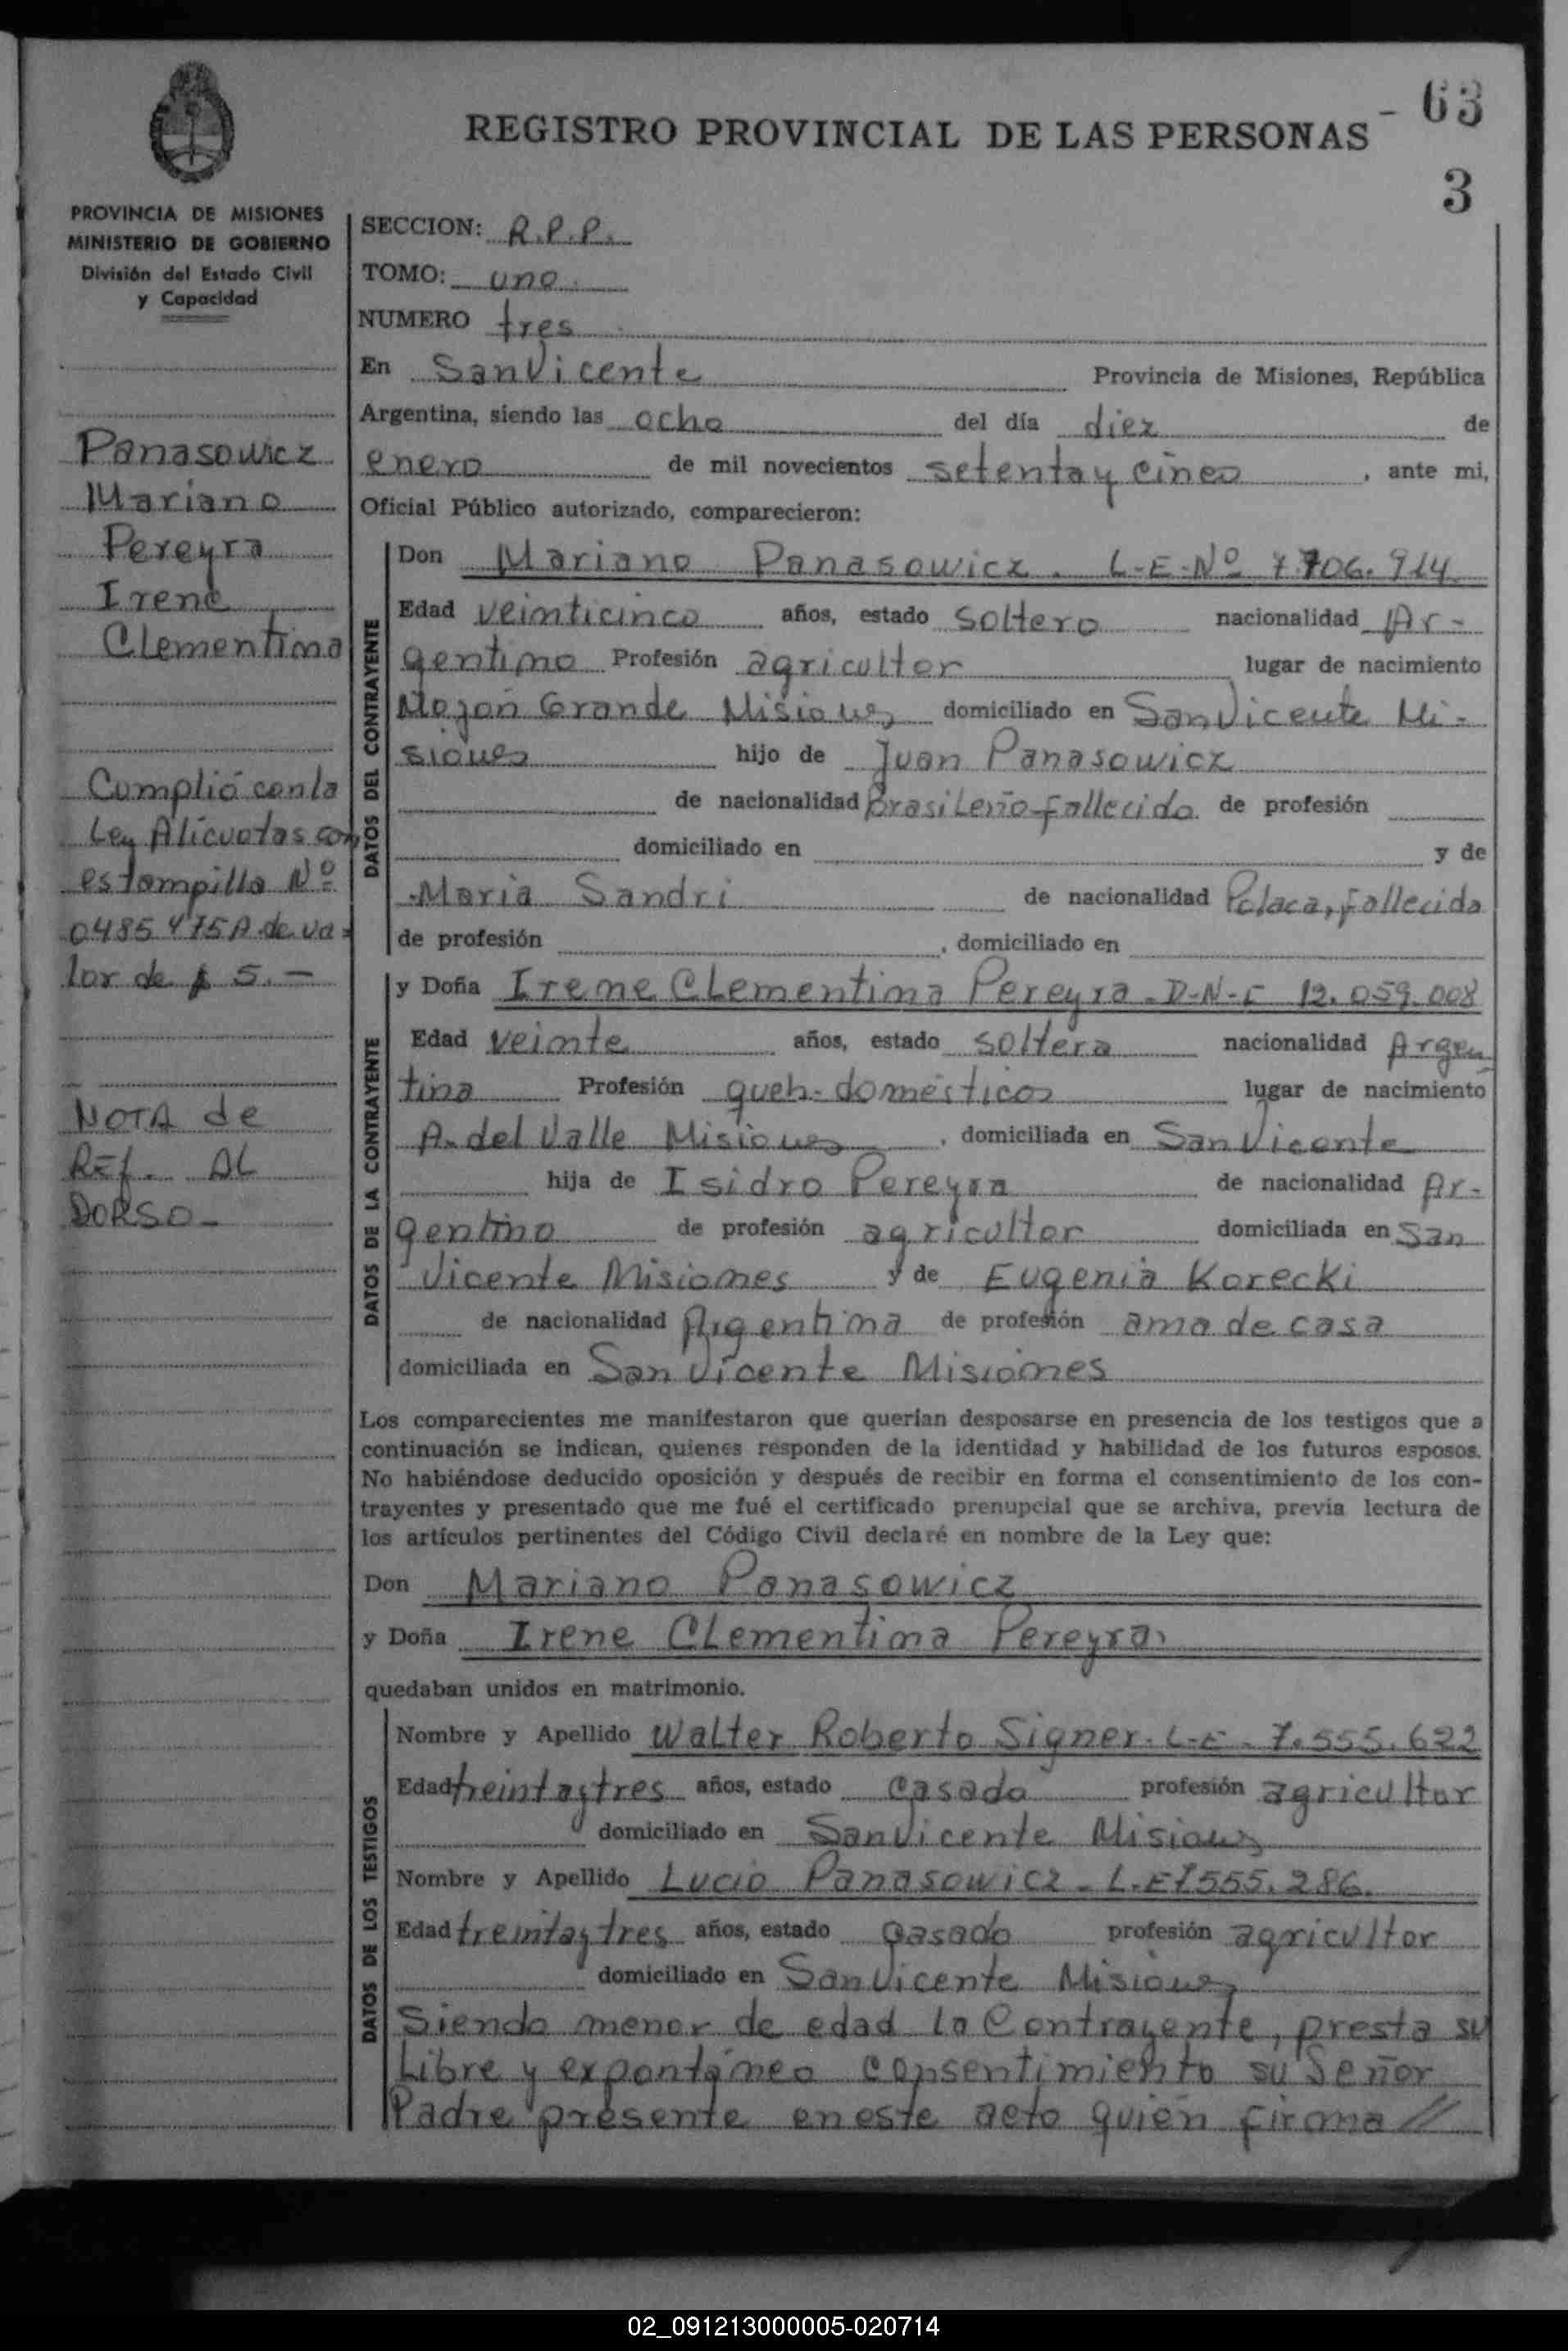 REGISTRO PROVINCIAL DE LAS PERSONAS - 63
3
PROVINCIA DE MISIONES
MINISTERIO DE GOBIERNO
División del Estado Civil
y Capacidad
Panasowicz
Mariano
Pereyra
Irene
Clementina
Cumplió con la
Ley Alicuotas con
estampilla Nº
0485475A de va-
lor de $ 5.-
NOTA de
REf. AL
DORSO-
SECCION: R.P.P.
TOMO: uno.
NUMERO tres
En San Vicente Provincia de Misiones, República
Argentina, siendo las ocho del día diez de
enero de mil novecientos setenta y cinco, ante mi,
Oficial Público autorizado, comparecieron:
DATOS DEL CONTRAYENTE
Don Mariano Panasowicz. L-E-Nº 7.706.914
Edad veinticinco años, estado soltero nacionalidad Ar-
gentino Profesión agricultor lugar de nacimiento
Mojón Grande Misiones domiciliado en San Vicente Mi-
siones hijo de Juan Panasowicz
de nacionalidad Brasileño-fallecido de profesión
domiciliado en y de
Maria Sandri de nacionalidad Polaca, fallecida
de profesión , domiciliado en
DATOS DE LA CONTRAYENTE
y Doña Irene Clementina Pereyra - D-N-I 12.059.008
Edad veinte años, estado soltera nacionalidad Argen
tina Profesión queh-domésticos lugar de nacimiento
A. del Valle Misiones, domiciliada en San Vicente
hija de Isidro Pereyra de nacionalidad Ar-
gentino de profesión agricultor domiciliada en San
Vicente Misiones y de Eugenia Korecki
de nacionalidad Argentina de profesión ama de casa
domiciliada en San Vicente Misiones
Los comparecientes me manifestaron que querían desposarse en presencia de los testigos que a
continuación se indican, quienes responden de la identidad y habilidad de los futuros esposos.
No habiéndose deducido oposición y después de recibir en forma el consentimiento de los con-
trayentes y presentado que me fué el certificado prenupcial que se archiva, previa lectura de
los artículos pertinentes del Código Civil declaré en nombre de la Ley que:
Don Mariano Panasowicz
y Doña Irene Clementina Pereyra
quedaban unidos en matrimonio.
DATOS DE LOS TESTIGOS
Nombre y Apellido Walter Roberto Signer. L-E- 7.555.622
Edad treinta y tres años, estado casado profesión agricultor
domiciliado en San Vicente Misiones
Nombre y Apellido Lucio Panasowicz - L.E 7555.286.
Edad treinta y tres años, estado casado profesión agricultor
domiciliado en San Vicente Misiones
Siendo menor de edad la Contrayente, presta su
Libre y expontáneo consentimiento su Señor
Padre presente en este acto quién firma //
02_091213000005-020714